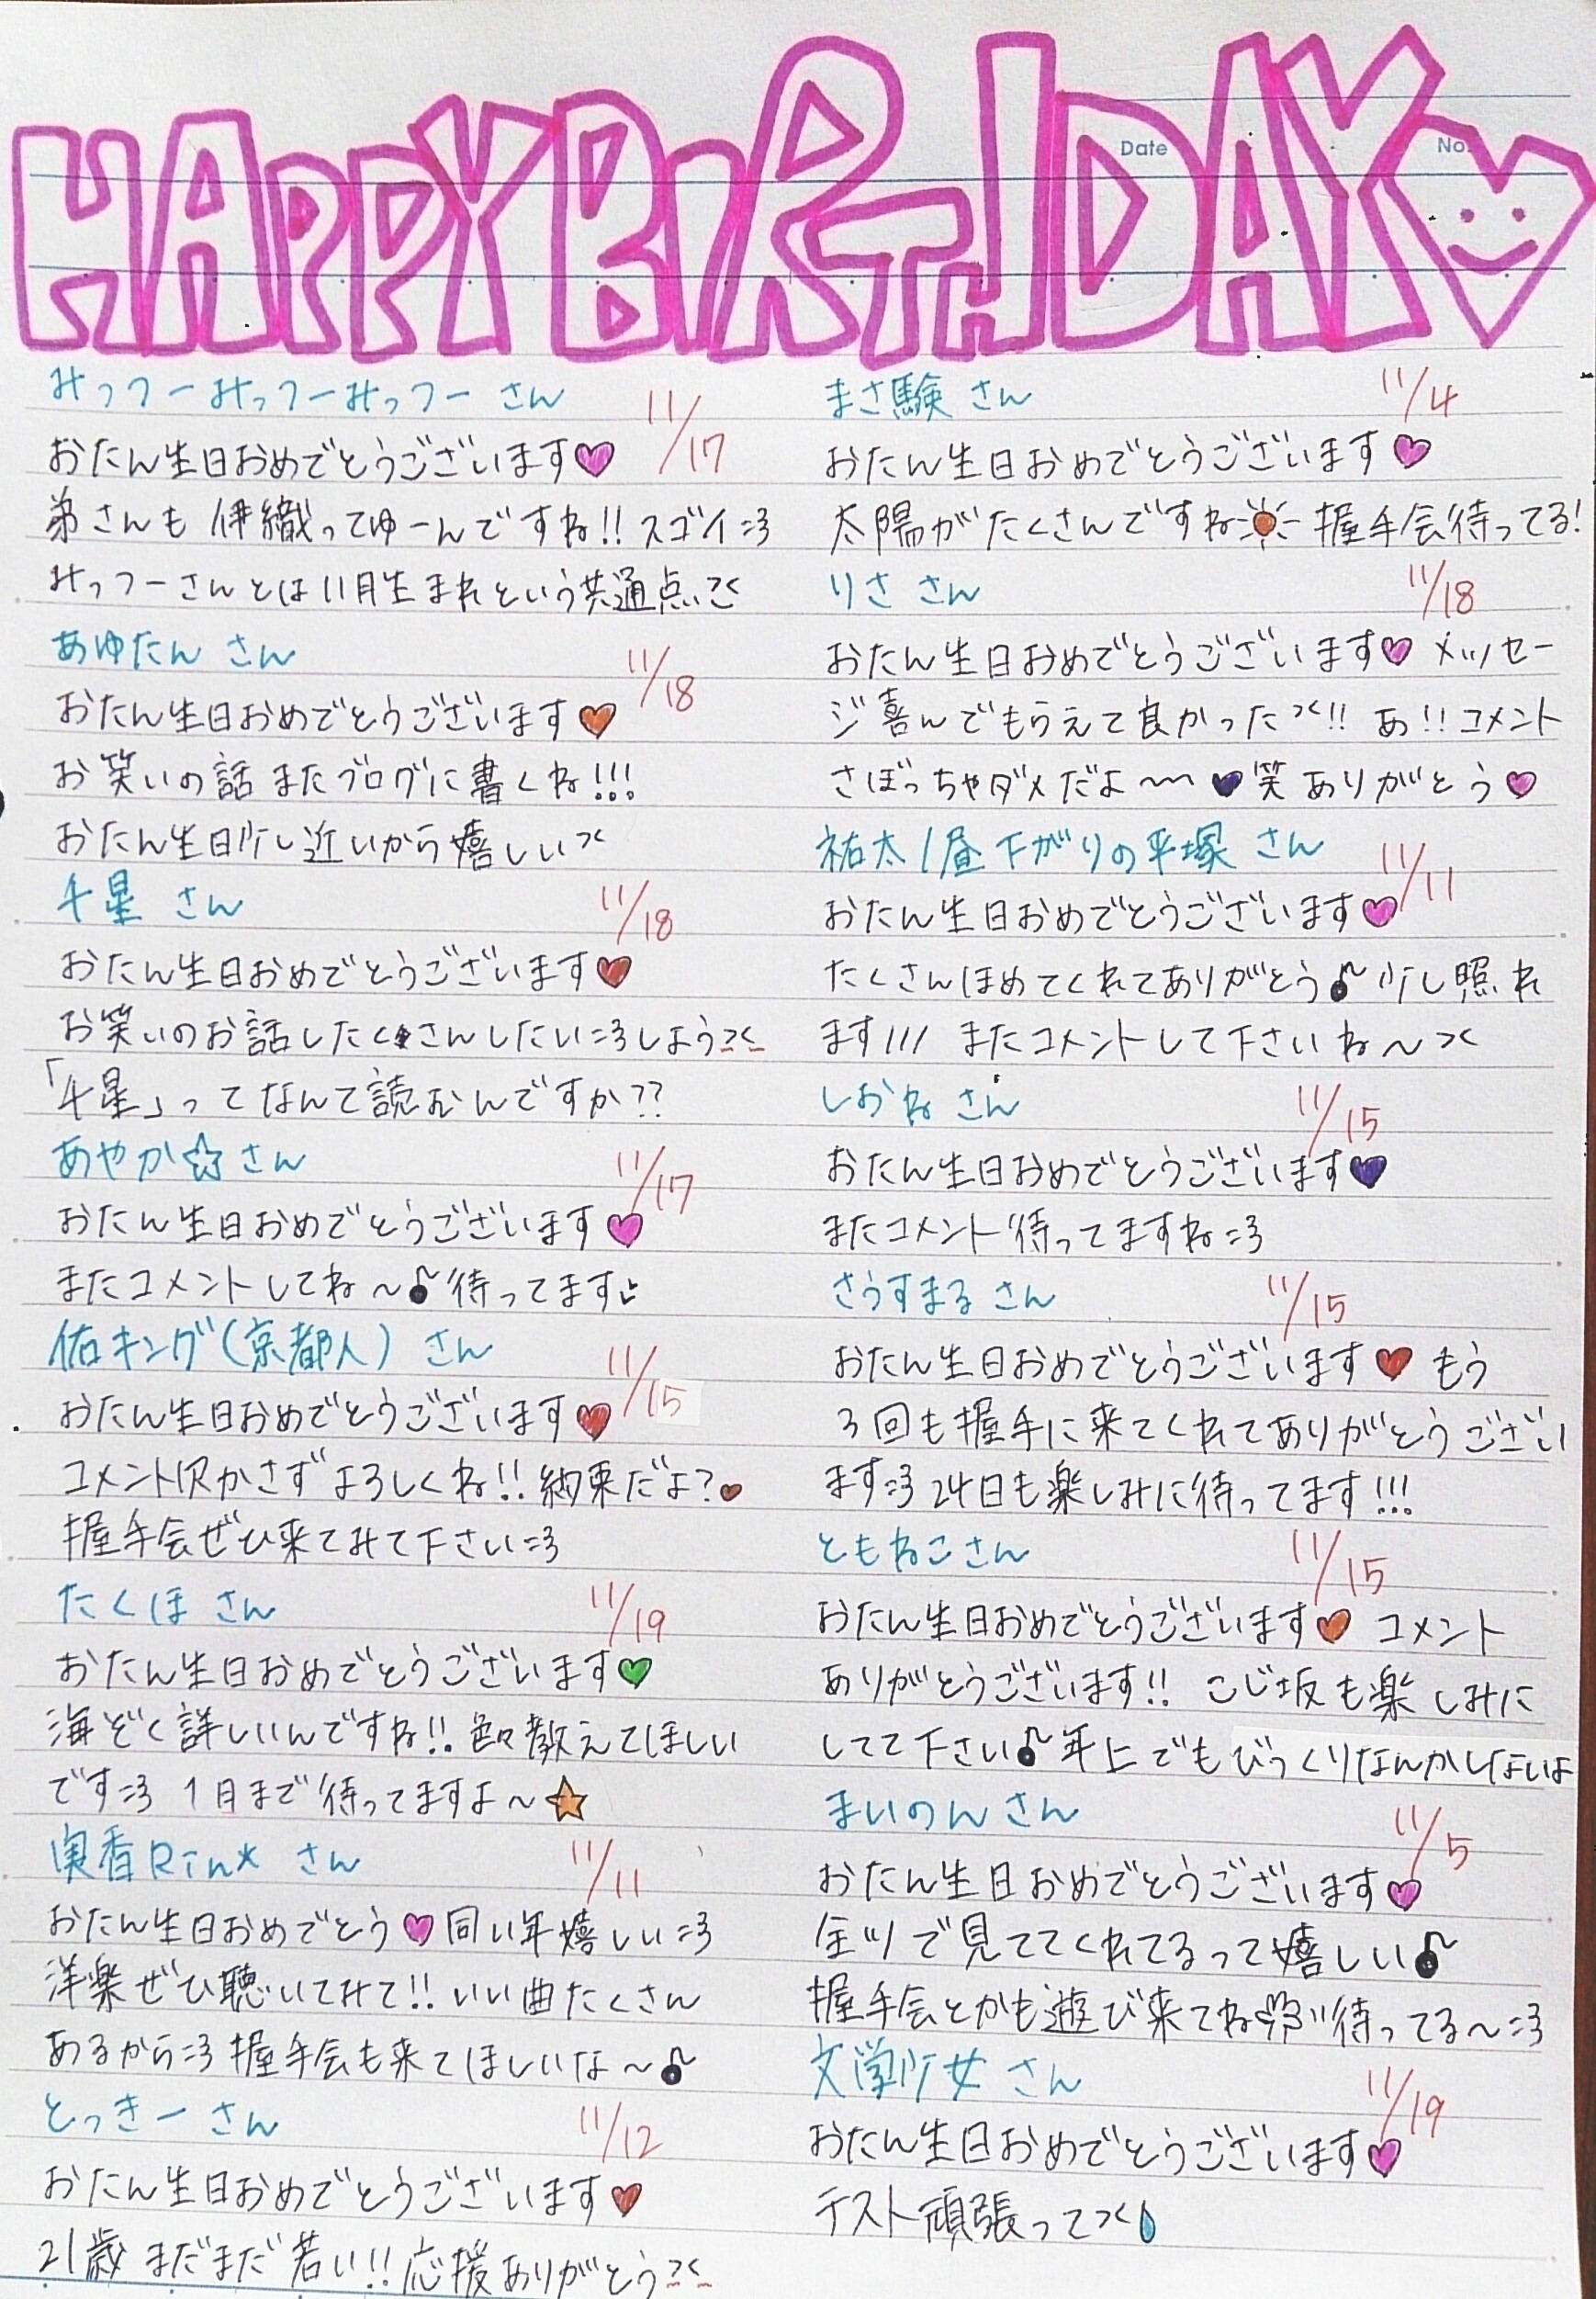 HAPPY BIRTHDAY
Date
No.
みっフーみっフーみっフー さん 11/17
おたん生日おめでとうございます♥
弟さんも伊織ってゆーんですね!! スゴイ=3
みっフーさんとは11月生まれという共通点><
あゆたん さん 11/18
おたん生日おめでとうございます♥
お笑いの話またブログに書くね!!!
おたん生日少し近いから嬉しい><
千星 さん 11/18
おたん生日おめでとうございます♥
お笑いのお話したくさんしたい=3しよう><
「千星」ってなんて読むんですか??
あやか☆さん 11/17
おたん生日おめでとうございます♥
またコメントしてね~♪待ってます
佑キング(京都人) さん 11/15
おたん生日おめでとうございます♥
コメント欠かさずよろしくね!! 約束だよ?♥
握手会ぜひ来てみて下さい=3
たくほ さん 11/19
おたん生日おめでとうございます♥
海ぞく詳しいんですね!! 色々教えてほしい
です=3 1月まで待ってますよ~☆
実香Rin* さん 11/11
おたん生日おめでとう♥同い年嬉しい=3
洋楽ぜひ聴いてみて!! いい曲たくさん
あるから=3 握手会も来てほしいな~♪
とっきー さん 11/12
おたん生日おめでとうございます♥
21歳まだまだ若い!! 応援ありがとう><
まさ験 さん 11/4
おたん生日おめでとうございます♥
太陽がたくさんですね 握手会待ってる!
りさ さん 11/18
おたん生日おめでとうございます♥ メッセー
ジ喜んでもらえて良かった><!! あ!! コメント
さぼっちゃダメだよ~ ♥笑 ありがとう♥
祐太/昼下がりの平塚 さん 11/11
おたん生日おめでとうございます♥
たくさんほめてくれてありがとう♪少し照れ
ます/// またコメントして下さいね~><
しおね さん 11/15
おたん生日おめでとうございます♥
またコメント待ってますね=3
さうすまる さん 11/15
おたん生日おめでとうございます♥ もう
3回も握手に来てくれてありがとうござい
ます=3 24日も楽しみに待ってます!!!
ともねこさん 11/15
おたん生日おめでとうございます♥ コメント
ありがとうございます!! こじ坂も楽しみに
してて下さい♪年上でもびっくりなんかしないよ
まいのん さん 11/5
おたん生日おめでとうございます♥
全ツで見ててくれてるって嬉しい♪
握手会とかも遊び来てね 待ってる~=3
文学少女 さん 11/19
おたん生日おめでとうございます♥
テスト頑張って><